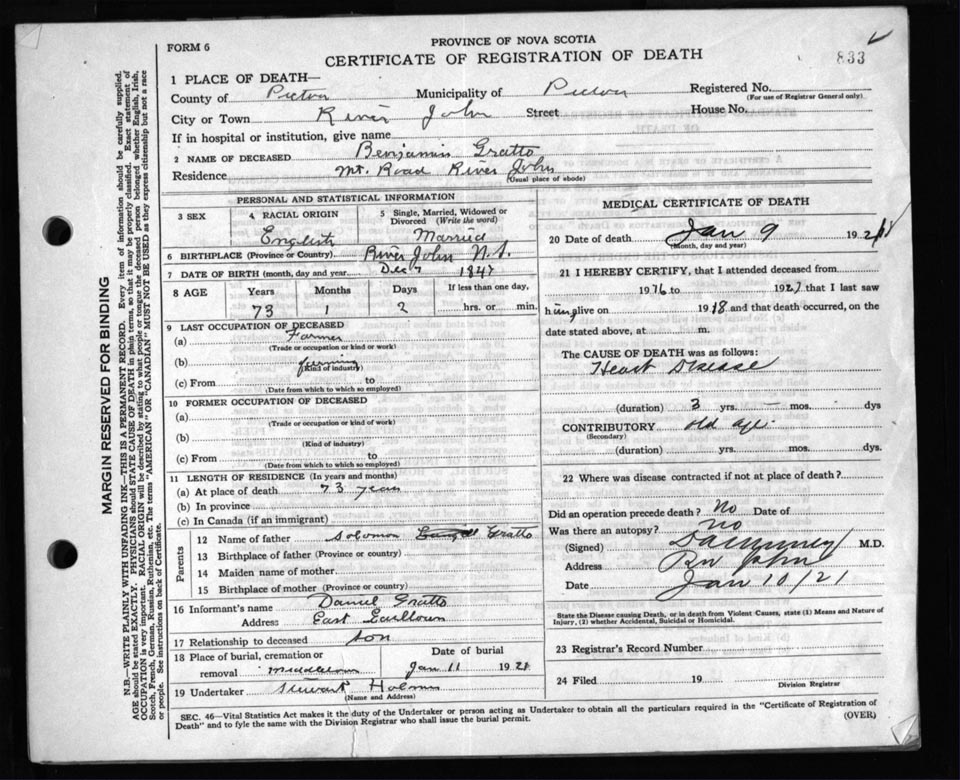 FORM 6
PROVINCE OF NOVA SCOTIA
CERTIFICATE OF REGISTRATION OF DEATH
833
1 PLACE OF DEATH—
County of Pictou Municipality of Pictou Registered No.
(For use of Registrar General only)
City or Town River John Street House No.
If in hospital or institution, give name
2 NAME OF DECEASED Benjamin Gratto
Residence Mt. Road River John
(Usual place of abode)
PERSONAL AND STATISTICAL INFORMATION
3 SEX
4 RACIAL ORIGIN
English
5 Single, Married, Widowed or Divorced (Write the word)
Married
6 BIRTHPLACE (Province or Country) River John N.S.
7 DATE OF BIRTH (month, day and year) Dec 7 1847
8 AGE Years Months Days If less than one day,
73 1 2 hrs. or min.
9 LAST OCCUPATION OF DECEASED
(a) Farmer
(Trade or occupation or kind or work)
(b) farming
(Kind of industry)
(c) From to
(Date from which to which so employed)
10 FORMER OCCUPATION OF DECEASED
(a)
(Trade or occupation or kind of work)
(b)
(Kind of industry)
(c) From to
(Date from which to which so employed)
11 LENGTH OF RESIDENCE (In years and months)
(a) At place of death 73 years
(b) In province
(c) In Canada (if an immigrant)
Parents
12 Name of father Solomon Gratto
13 Birthplace of father (Province or country)
14 Maiden name of mother
15 Birthplace of mother (Province or country)
16 Informant's name Daniel Gratto
Address East Earltown
17 Relationship to deceased son
18 Place of burial, cremation or Date of burial
removal Middletown Jan 11 1921
19 Undertaker Stewart Holmes
(Name and Address)
MEDICAL CERTIFICATE OF DEATH
20 Date of death Jan 9 192
(Month, day and year)
21 I HEREBY CERTIFY, that I attended deceased from
1916 to 1921 that I last saw
him alive on 1918 and that death occurred, on the
date stated above, at m.
The CAUSE OF DEATH was as follows:
Heart Disease
(duration) 3 yrs. — mos. dys
CONTRIBUTORY old age
(Secondary)
(duration) yrs. mos. dys
22 Where was disease contracted if not at place of death?
Did an operation precede death? No Date of
Was there an autopsy? No
(Signed) M.D.
Address John
Date Jan 10/21
State the Disease causing Death, or in death from Violent Causes, state (1) Means and Nature of
Injury, (2) whether Accidental, Suicidal or Homicidal.
23 Registrar's Record Number
24 Filed 19
Division Registrar
SEC. 46—Vital Statistics Act makes it the duty of the Undertaker or person acting as Undertaker to obtain all the particulars required in the "Certificate of Registration of
Death" and to fyle the same with the Division Registrar who shall issue the burial permit.
(OVER)
MARGIN RESERVED FOR BINDING
N.B.—WRITE PLAINLY WITH UNFADING INK—THIS IS A PERMANENT RECORD. Every item of information should be carefully supplied.
AGE should be stated EXACTLY. PHYSICIANS should STATE CAUSE OF DEATH in plain terms, so that it may be properly classified. Exact statement of
OCCUPATION is very important. RACIAL ORIGIN will be described by stating to what people or tongue the deceased person belonged whether English, Irish,
Scotch, French, German, Russian, Ruthenian, etc. The terms "AMERICAN" OR "CANADIAN" MUST NOT BE USED as they express citizenship but not a race
or people. See instructions on back of Certificate.